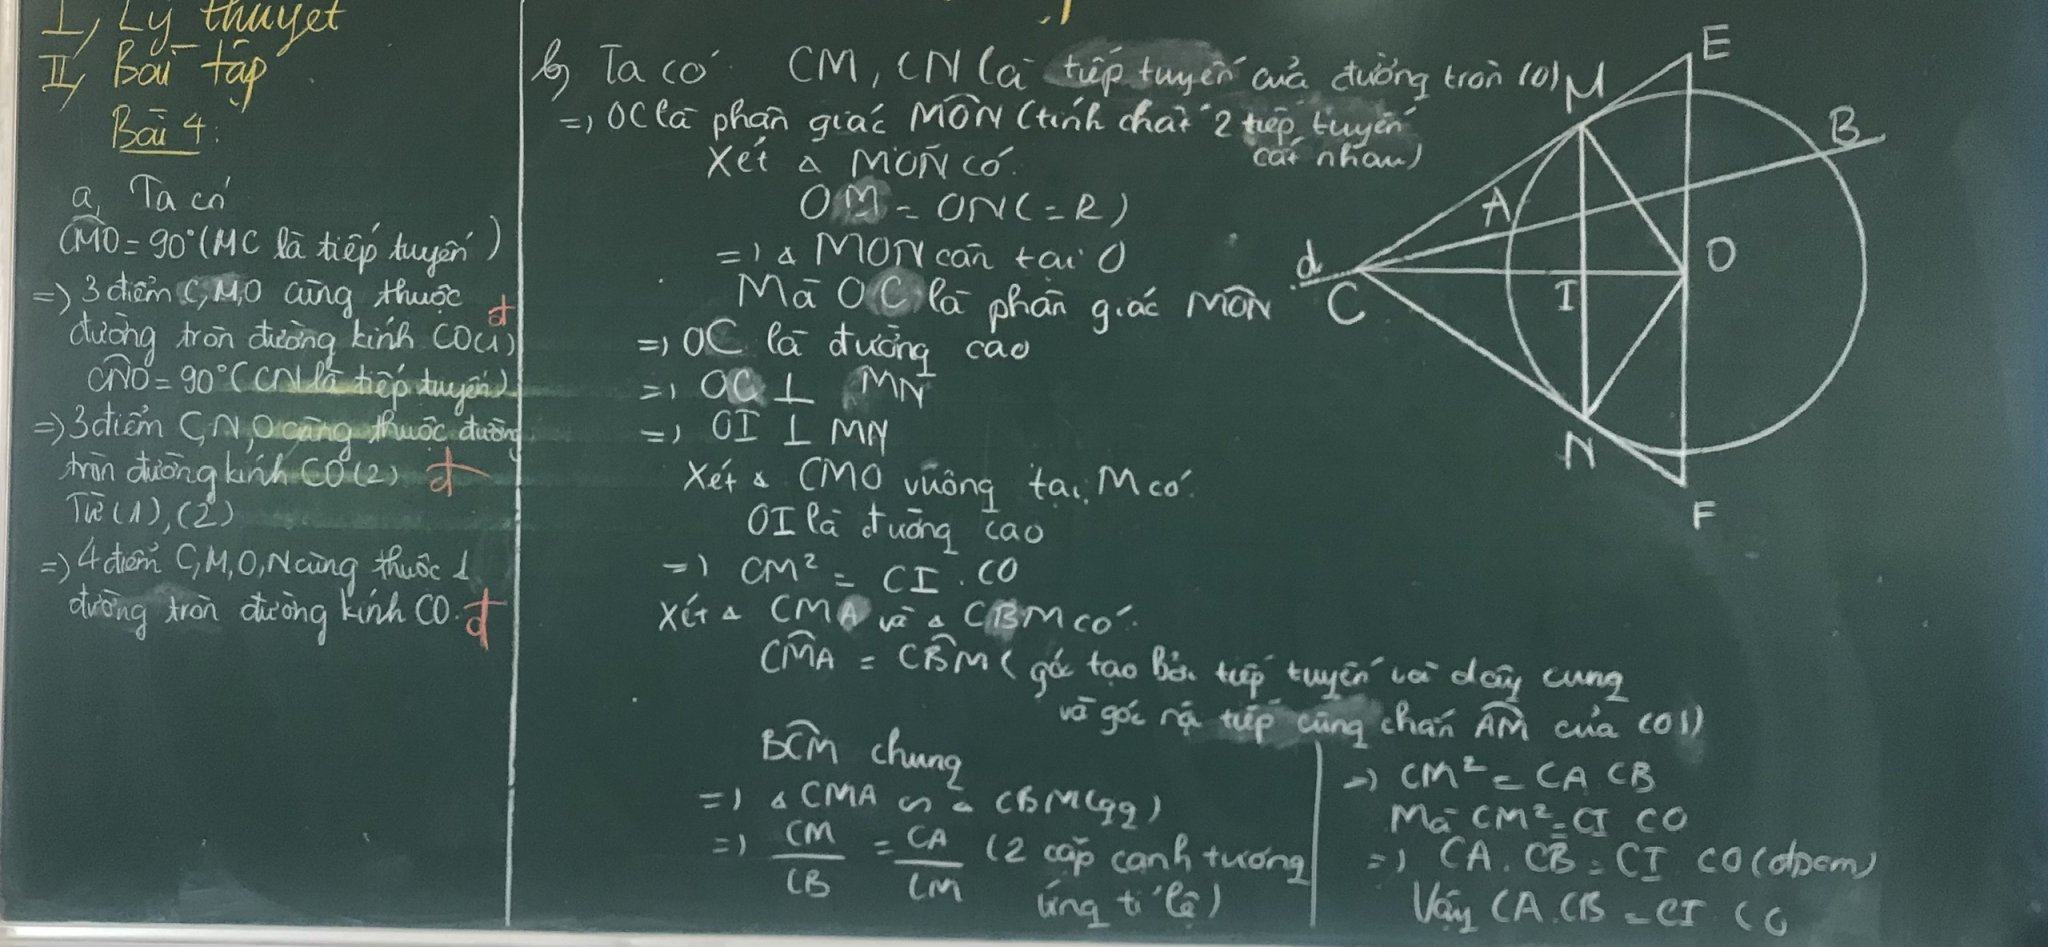 I, Lý thuyết
II, Bài tập
Bài 4:
a, Ta có
CMO = 90° (MC là tiếp tuyến)
=> 3 điểm C, M, O cùng thuộc
đường tròn đường kính CO (1)
CNO = 90° (CN là tiếp tuyến)
=> 3 điểm C, N, O cùng thuộc đường
tròn đường kính CO (2)
Từ (1), (2)
=> 4 điểm C, M, O, N cùng thuộc 1
đường tròn đường kính CO.
b, Ta có CM, CN là tiếp tuyến của đường tròn (O)
=> OC là phân giác MON (tính chất 2 tiếp tuyến
cắt nhau)
Xét Δ MON có
OM = ON (= R)
=> Δ MON cân tại O
Mà OC là phân giác MON
=> OC là đường cao
=> OC ⊥ MN
=> OI ⊥ MN
Xét Δ CMO vuông tại M có
OI là đường cao
=> CM² = CI . CO
Xét Δ CMA và Δ CBM có
CMA = CBM (góc tạo bởi tiếp tuyến và dây cung
và góc nội tiếp cùng chắn AM của (O))
BCM chung
=> Δ CMA ∽ Δ CBM (gg)
=> CM/CB = CA/CM (2 cặp cạnh tương
ứng tỉ lệ)
=> CM² = CA . CB
Mà CM² = CI . CO
=> CA . CB = CI . CO (đpcm)
Vậy CA . CB = CI . CO
E
M
B
A
d
C
I
O
N
F